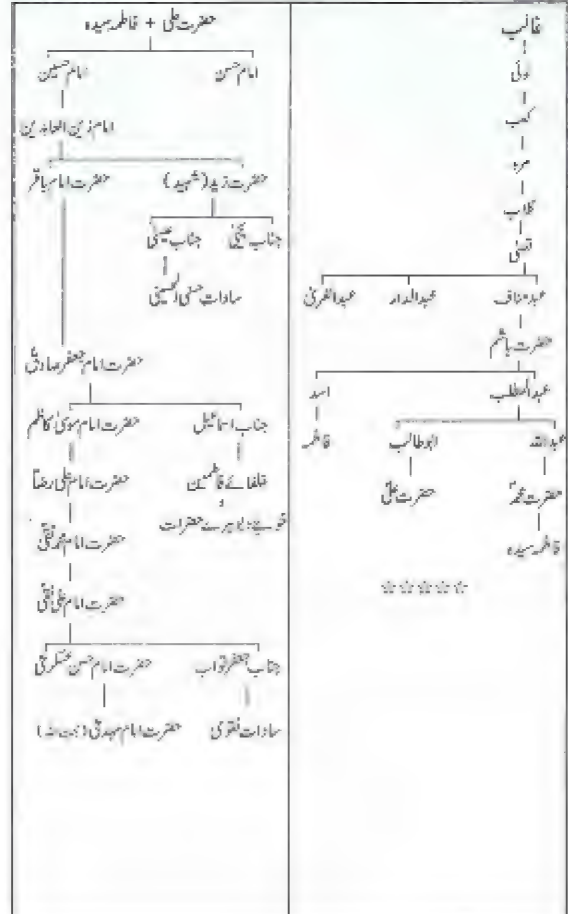 غالب
لوئی
کعب
مرہ
کلاب
قصّی
عبدمناف عبدالدار عبدالعزیٰ
حضرت ہاشم
عبدالمطلب اسد
عبداللہ ابوطالب فاطمہ
حضرت محمدؐ حضرت علیؑ
فاطمہ سیدہ
☆☆☆☆☆
حضرت علی + فاطمہ سیدہ
امام حسن امام حسین
امام زین العابدین
حضرت زید (شہید) حضرت امام باقر
جناب یحییٰ جناب عیسیٰ
سادات حسنی الحسینی
حضرت امام جعفر صادقؑ
جناب اسماعیل حضرت امام موسیٰ کاظم
خلفائے فاطمین حضرت امام علی رضاؑ
و
بوہرے حضرات
حضرت امام محمد تقیؑ
حضرت امام علی نقیؑ
جناب جعفر تواب حضرت امام حسن عسکریؑ
سادات نقوی حضرت امام مہدیؑ